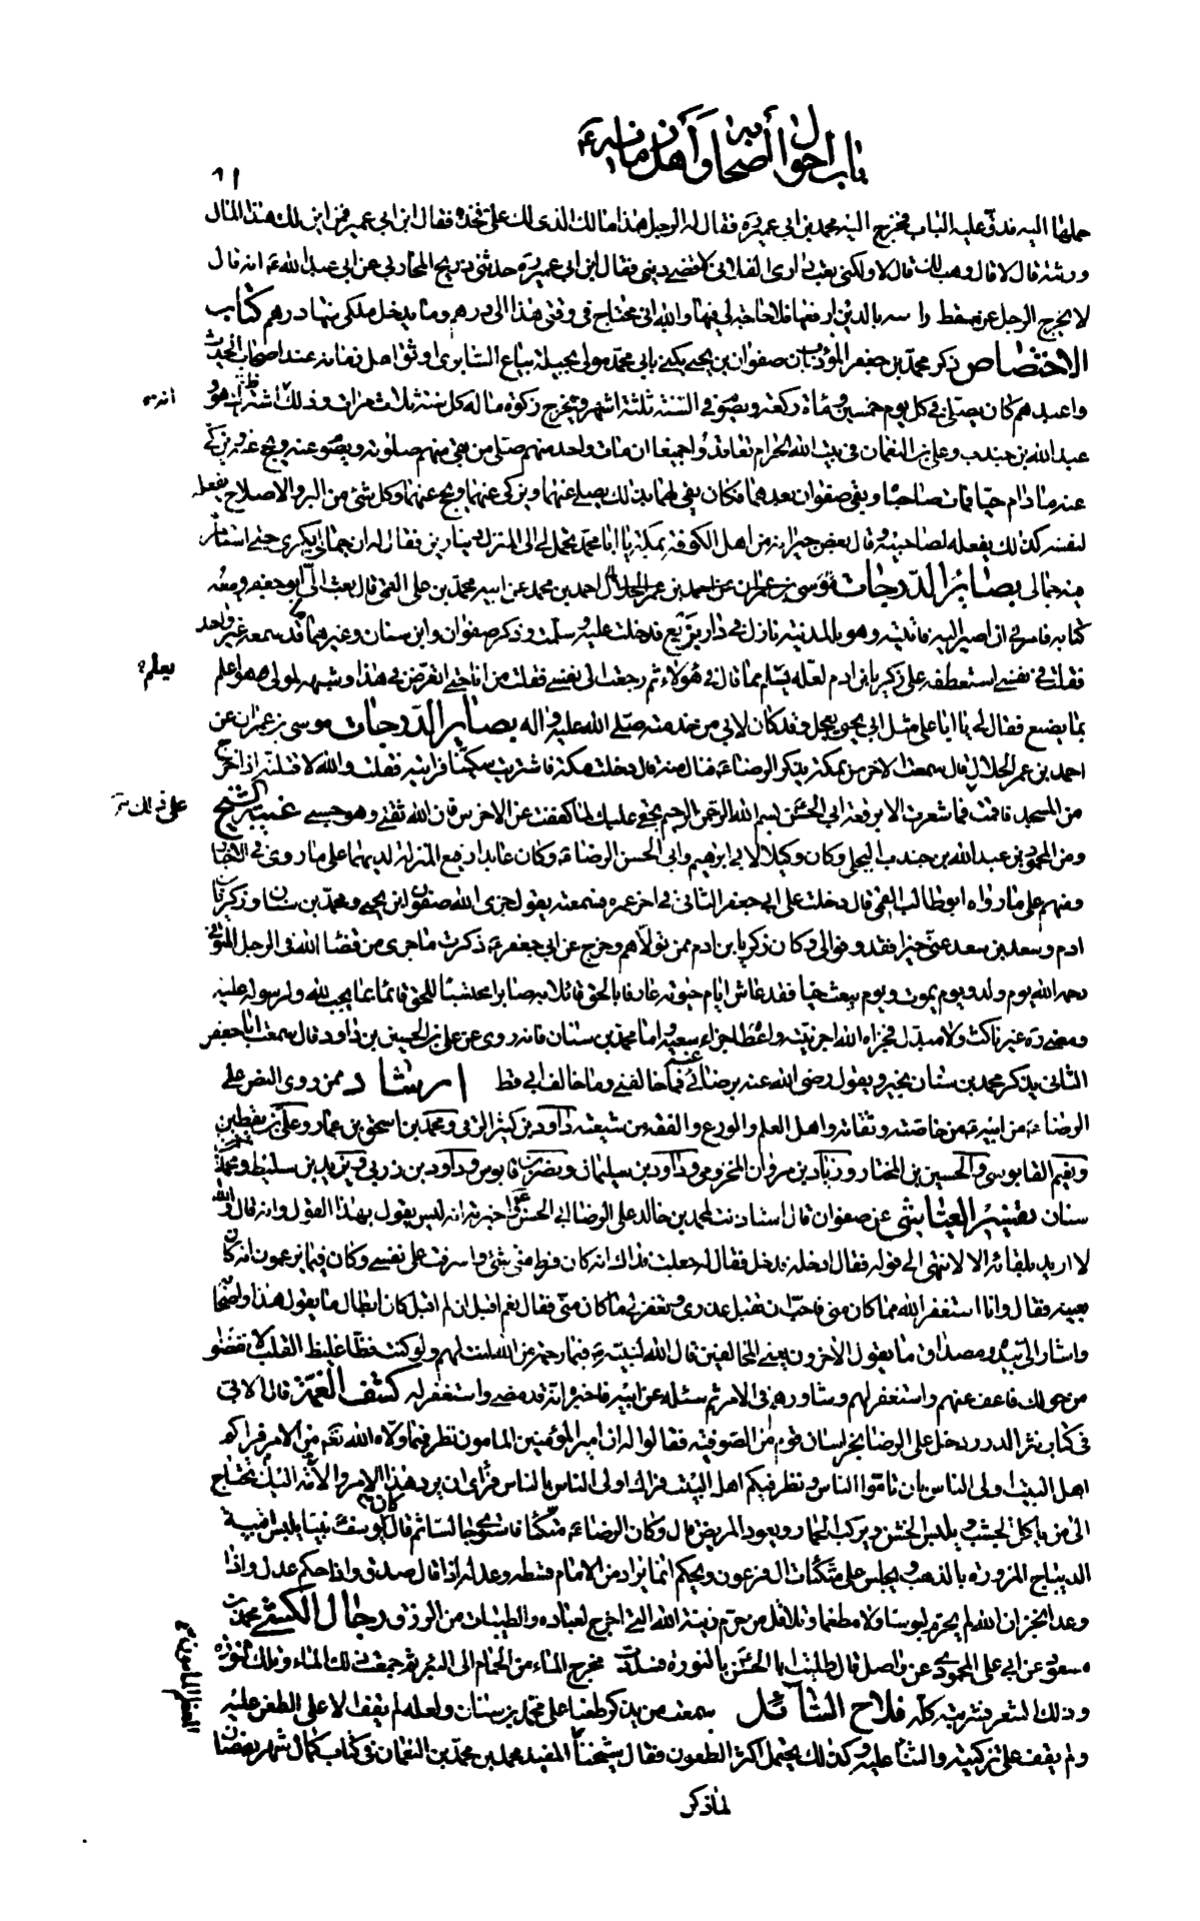 باب احوال أصحابه وأهل زمانه ع
٨١
حملها اليه فدق عليه الباب فخرج اليه محمد بن ابي عمير ره فقال له الرجل هذا مالك الذى لك على فخذه فقال ابن ابي عمير فمن اين لك هذا المال
ورثته قال لا قال وهب لك قال لا ولكنى بعت دارى الفلانى لاقضى دينى فقال ابن ابي عمير ره حدثنى ذريح المحاربي عن ابي عبد الله ع انه قال
لا يخرج الرجل عن مسقط راسه بالدين ارفعها فلا حاجة لى فيها والله انى محتاج فى وقتى هذا الى درهم وما يدخل ملكى منها درهم كتاب
الاختصاص ذكر محمد بن جعفر المؤدب ان صفوان بن يحيى يكنى بابي محمد مولى بجيلة بياع السابرى اوثق اهل زمانه عند اصحاب الحديث
واعبدهم كان يصلى فى كل يوم خمسين ومأة ركعة ويصوم فى السنة ثلثة اشهر ويخرج زكوة ماله كل سنة ثلاث مرات وذلك اشترك هو و
انه
عبد الله بن جندب وعلى بن النعمان فى بيت الله الحرام تعاقدوا جميعا ان مات واحد منهم صلى من بقى منهم صلوته ويصوم عنه ويحج عنه ويزكى
عنه ما دام حيا فمات صاحباه وبقى صفوان بعدهما فكان يفى لهما بذلك يصلى عنهما ويزكى عنهما ويحج عنهما وكل شئ من البر والاصلاح يفعله
لنفسه كذلك يفعله لصاحبيه وقال بعض جيرانه من اهل الكوفة بمكة يا ابا محمد تحمل لى الى المنزل دينارين فقال له ان جمالى بكرى حتى استأمر
فيه جمالى بصائر الدرجات موسى بن عمران عن احمد بن عمر الحلال احمد بن محمد عن ابيه محمد بن على القمى قال بعث الى ابو جعفر ومعه
كتابه فامرنى ان اصير اليه فاتيته وهو بالمدينة نازل فى دار بزيع فدخلت عليه وسلمت وذكر صفوان وابن سنان وغيرهما ما قد سمعه غير واحد
فقلت فى نفسى استعطفه على زكريا ابن ادم لعله يسلم مما قال فى هؤلاء ثم رجعت الى نفسى فقلت من انا حتى اتعرض فى هذا وشبهه لمولى هو اعلم
يعلم
بما يصنع فقال لى يا ابا على مثل ابي يحيى يعجل وقد كان لابي من خدمته صلى الله عليه واله بصائر الدرجات موسى بن عمران عن
احمد بن عمر الحلال قال سمعت الاخرس بمكة يذكر الرضا ع فنال منه قال دخلت مكة فاشتريت سكينا فرايته فقلت والله لاقتلنه اذا خرج
من المسجد فاقمت فما شعرت الا برقعة ابي الحسن بسم الله الرحمن الرحيم بحقى عليك لما كففت عن الاخرس فان الله ثقتى وهو حسبى غيبة الشيخ
على ذلك
ومن المحمودين عبد الله بن جندب البجلى وكان وكيلا لابي ابرهيم وابي الحسن الرضا ع وكان عابدا رفيع المنزلة لديهما على ما روى فى الاخبار
ومنهم على ما رواه ابو طالب القمى قال دخلت على ابي جعفر الثانى فى اخر عمره فسمعته يقول جزى الله صفوان ابن يحيى ومحمد بن سنان وزكريا بن
ادم وسعد بن سعد عنى خيرا فقد وفوا لى وكان زكريا بن ادم ممن تولاهم وخرج عن ابي جعفر ع ذكرت ما جرى من قضاء الله فى الرجل المتوفى
رحمه الله يوم ولد ويوم يموت ويوم يبعث حيا فقد عاش ايام حيوته عارفا بالحق قائلا به صابرا محتسبا للحق قائما بما يجب لله ولرسوله عليه
ومضى ره غير ناكث ولا مبدل فجزاه الله اجر نيته واعطاه جزاء سعيه واما محمد بن سنان فانه روى عن على بن الحسين بن داود قال سمعت ابا جعفر
الثانى يذكر محمد بن سنان بخير ويقول رضى الله عنه برضائى عنه فما خالفنى وما خالف ابي قط ارشاد ممن روى النص على
الرضا ع من ابيه ع من خاصته وثقاته واهل العلم والورع والفقه من شيعته داود بن كثير الرقى ومحمد بن اسحق بن عمار وعلى بن يقطين
ونعيم القابوسى والحسين بن المختار وزياد بن مروان المخزومى وداود بن سليمان ونصر بن قابوس وداود بن زربى ويزيد بن سليط ومحمد بن
سنان تفسير العياشى عن صفوان قال استاذنت لمحمد بن خالد على الرضا ابي الحسن ع واخبرته انه ليس يقول بهذا القول وانه قال والله
لا اريد بلقائه الا لانتهى الى قوله فقال ادخله فدخل فقال له جعلت فداك انه كان فرط منى شئ واسرفت على نفسى وكان فيما يزعمون انه كان
يعيبه فقال وانا استغفر الله مما كان منى فاحب ان تقبل عذرى وتغفر لى ما كان منى فقال نعم اقبل ان لم اقبل كان ابطال ما يقول هذا واصحابه
واشار الى بيده ومصداق ما يقول الاخرون يعنى المخالفين قال الله لنبيه ع فبما رحمة من الله لنت لهم ولو كنت فظا غليظ القلب لانفضوا
من حولك فاعف عنهم واستغفر لهم وشاورهم فى الامر ثم سئله عن ابيه فاخبره انه قد مضى واستغفر له كشف الغمة قال الابى
فى كتاب نثر الدرر دخل على الرضا بخراسان قوم من الصوفية فقالوا له ان امير المؤمنين المامون نظر فيما ولاه الله تعالى من الامر فراكم
اهل البيت اولى الناس بان تاموا الناس ونظر فيكم اهل البيت فراك اولى الناس بالناس فراى ان يرد هذا الامر والامة اليك تحتاج
الى من ياكل الجشب ويلبس الخشن ويركب الحمار ويعود المريض قال وكان الرضا ع متكئا فاستوى جالسا ثم قال كان يوسف نبيا يلبس اقبية
الديباج المزورة بالذهب ويجلس على متكئات ال فرعون ويحكم انما يراد من الامام قسطه وعدله اذا قال صدق واذا حكم عدل واذا
وعد انجز ان الله لم يحرم لبوسا ولا مطعما وتلا قل من حرم زينة الله التى اخرج لعباده والطيبات من الرزق رجال الكشى محمد بن
مسعود عن ابي على المحمودى عن واصل قال طليت ابا الحسن بالنورة فسددت مخرج الماء من الحمام الى البئر ثم جمعت ذلك الماء وتلك النورة
وذلك الشعر فشربته كله فلاح السائل سمعت من يذكر طعنا على محمد بن سنان ولعله لم يقف الا على الطعن عليه
ولم يقف على تزكيته والثناء عليه وكذلك يحتمل اكثر الطعون فقال شيخنا المفيد محمد بن محمد بن النعمان فى كتاب كمال شهر رمضان
لما ذكر